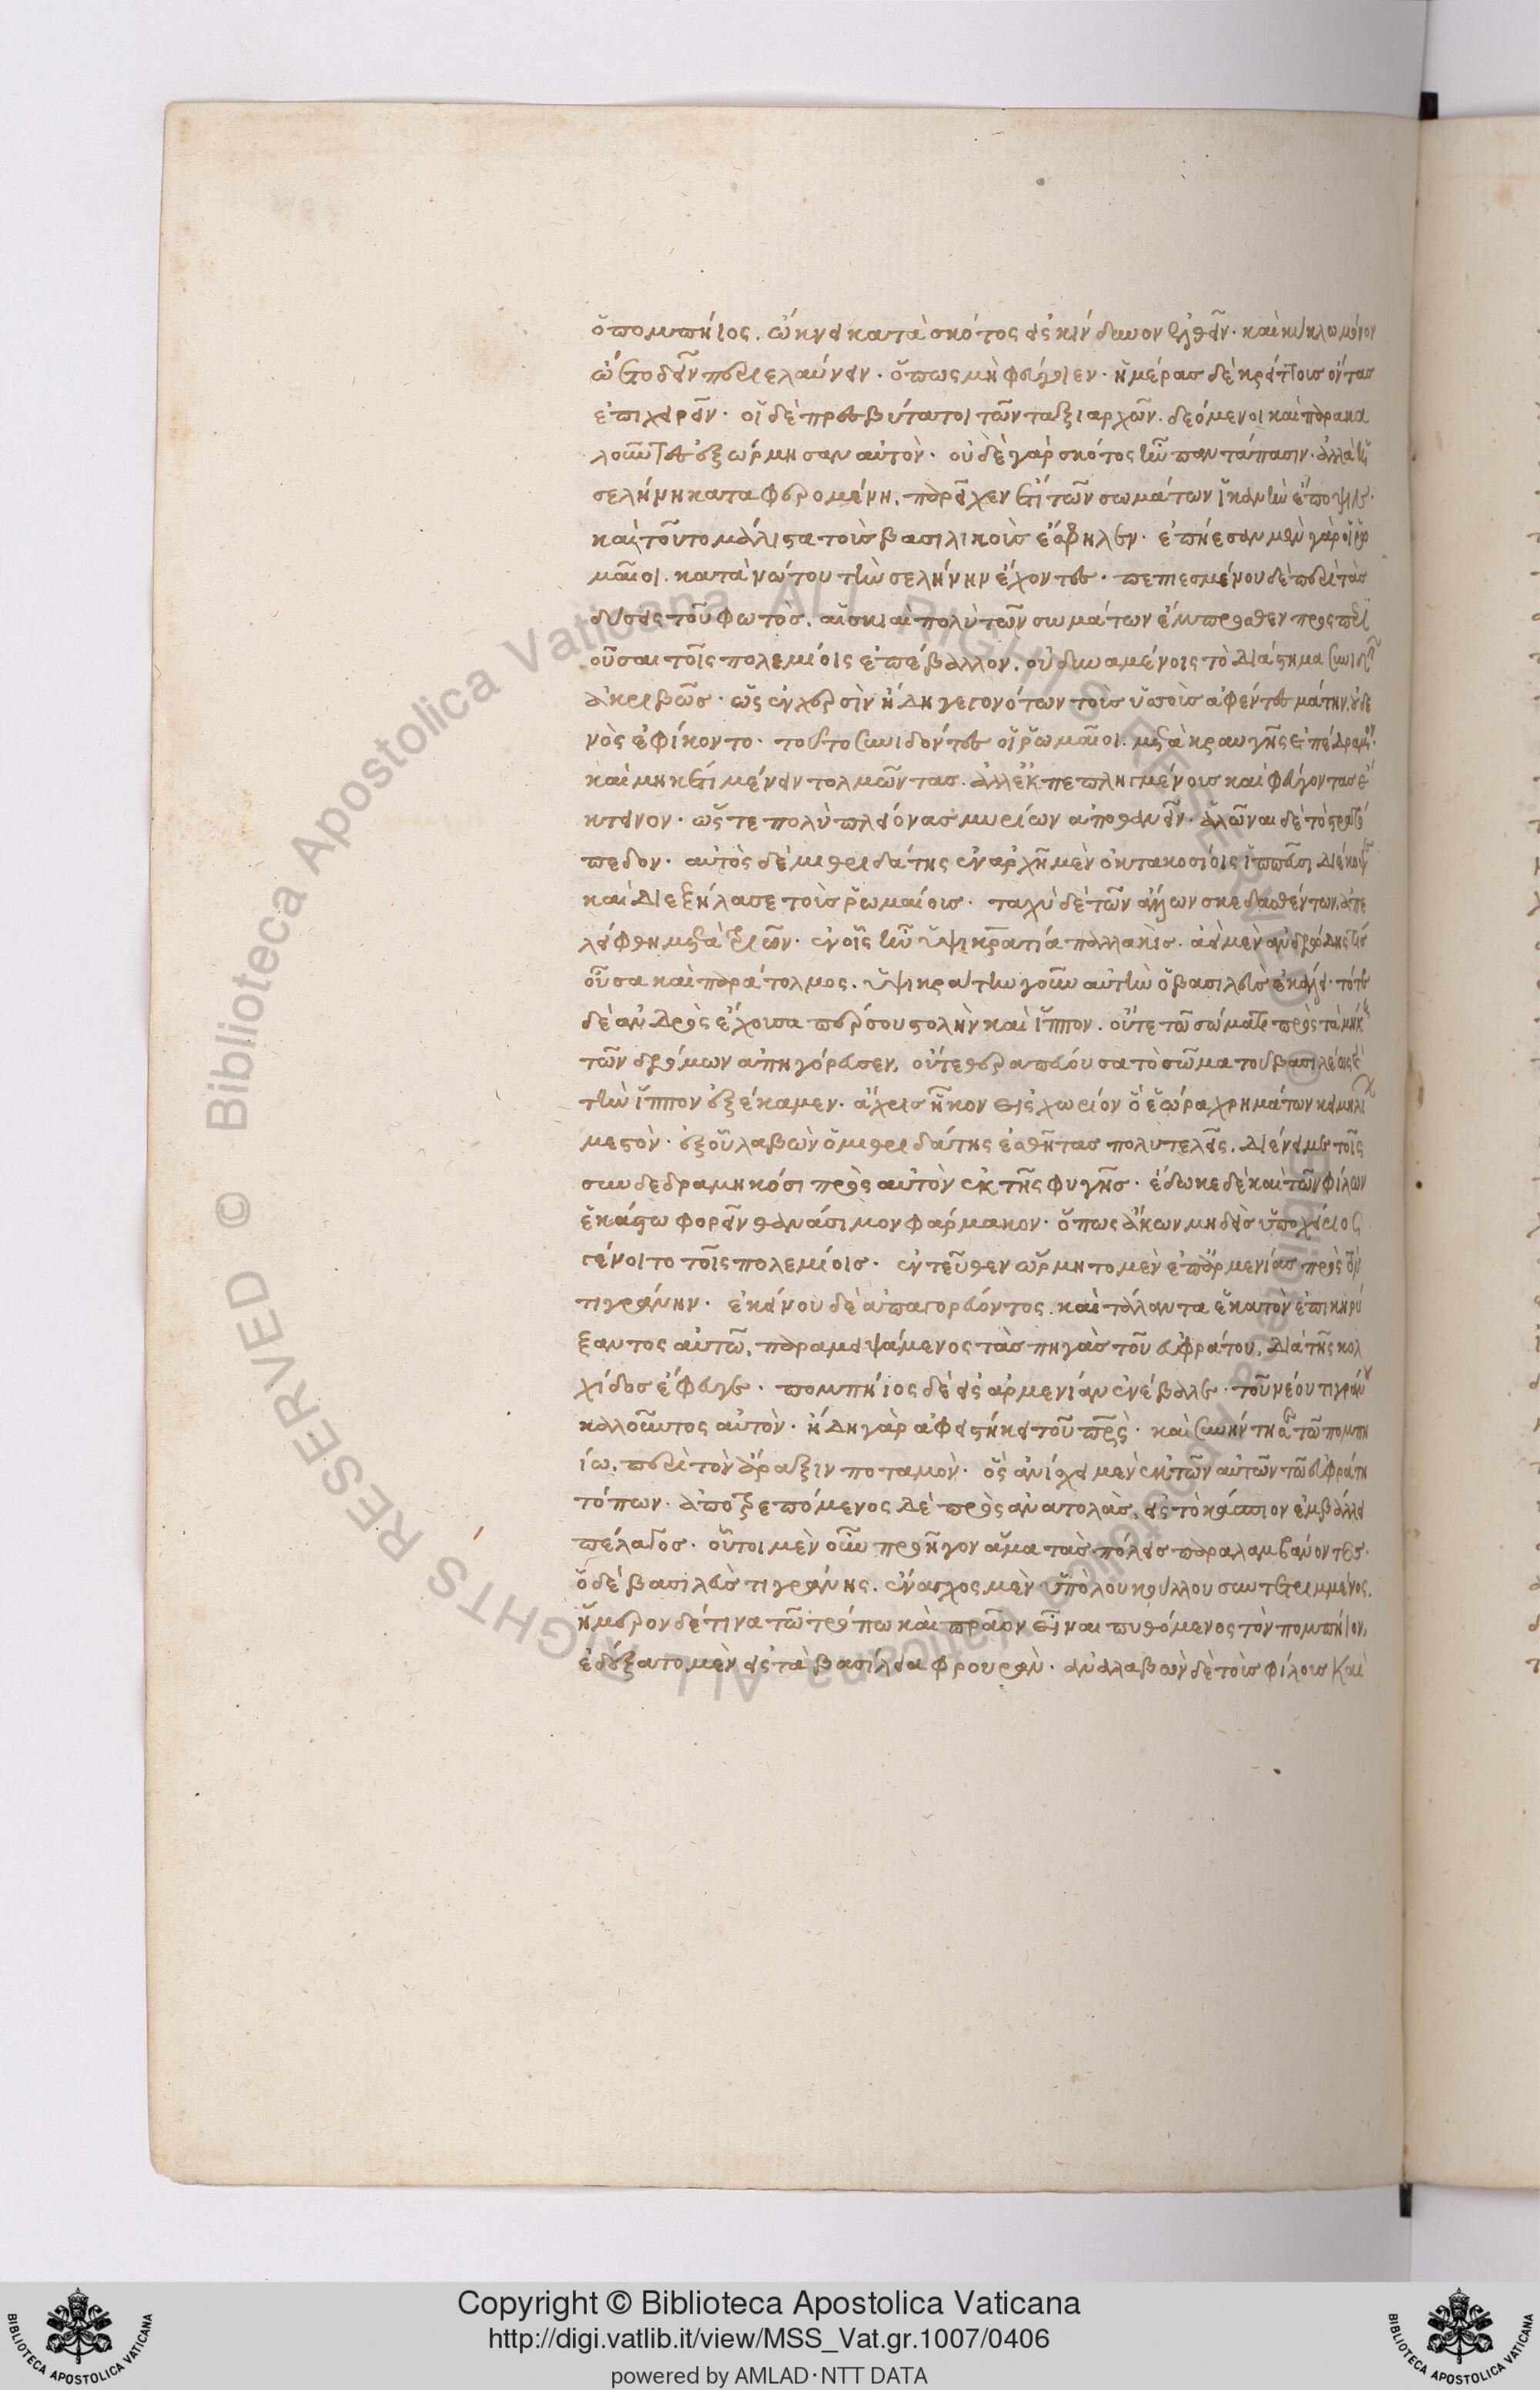 ὁ πομπήιος. ὤκνει κατὰ σκότος εἰς κίνδυνον ἐλθεῖν. καὶ κύκλω μόνον
ὤετο δεῖν περιελαύνειν. ὅπως μὴ φύγοιεν. ἡμέρας δὲ κρείττους ὄντας
ἐπιχειρεῖν. οἱ δὲ πρεσβύτατοι τῶν ταξιαρχῶν. δεόμενοι καὶ παρακα
λοῦντες ἐξώρμησαν αὐτὸν. οὐδὲ γὰρ σκότος ἦν παντάπασιν. ἀλλὰ ἡ
σελήνη καταφερομένη. παρεῖχεν ἔτι τῶν σωμάτων ἱκανὴν ἔποψιν.
καὶ τοῦτο μάλιστα τοὺς βασιλικοὺς ἔσφηλεν. ἐπήεσαν μὲν γὰρ οἱ ῥω
μαῖοι. κατὰ νώτου τὴν σελήνην ἔχοντες. πεπιεσμένου δὲ περὶ τὰς
δύσεις τοῦ φωτὸς. αἱ σκιαὶ πολὺ τῶν σωμάτων ἔμπροσθεν προϊ
οῦσαι τοῖς πολεμίοις ἐπέβαλλον. οὐ δυναμένοις τὸ διάστημα συνιδεῖν
ἀκριβῶς. ὡς ἐν χερσὶν ἤδη γεγονότων τοὺς ὑσσοὺς ἀφέντες μάτην, οὐδε
νὸς ἐφίκοντο. τοῦτο συνιδόντες οἱ ῥωμαῖοι. μετὰ κραυγῆς ἐπέδραμον.
καὶ μηκέτι μένειν τολμῶντας. ἀλλ' ἐκπεπληγμένους καὶ φεύγοντας ἔ
κτεινον. ὥστε πολὺ πλείονας μυρίων ἀποθανεῖν. ἁλῶναι δὲ τὸ στρατό
πεδον. αὐτὸς δὲ μιθριδάτης ἐν ἀρχῆ μὲν ὀκτακοσίοις ἱππεῦσι διέκοψε
καὶ διεξήλασε τοὺς ῥωμαίους. ταχὺ δὲ τῶν ἄλλων σκεδασθέντων, ἀπε
λείφθη μετὰ τριῶν. ἐν οἷς ἦν ὑψικρατία παλλακὶς. ἀεὶ μὲν ἀνδρώδης τις
οὖσα καὶ παράτολμος. ὑψικράτην γοῦν αὐτὴν ὁ βασιλεὺς ἐκάλει. τότε
δὲ ἀνδρὸς ἔχουσα πέρσου στολὴν καὶ ἵππον. οὔτε τῶ σώματι πρὸς τὰ μήκη
τῶν δρόμων ἀπηγόρευσεν, οὔτε θεραπεύουσα τὸ σῶμα τοῦ βασιλέως καὶ
τὴν ἵππον ἐξέκαμεν. ἄχρις ἧκον εἰς χωρίον
μεστὸν. ἐξ οὗ λαβὼν ὁ μιθριδάτης ἐσθῆτας πολυτελεῖς. διένειμε τοῖς
συνδεδραμηκόσι πρὸς αὐτὸν ἐκ τῆς φυγῆς. ἔδωκε δὲ καὶ τῶν φίλων
ἑκάστω φορεῖν θανάσιμον φάρμακον. ὅπως ἄκων μηδεὶς ὑποχείριος
γένοιτο τοῖς πολεμίοις. ἐντεῦθεν ὥρμητο μὲν ἐπ' ἀρμενίας πρὸς
τιγράνην. ἐκείνου δὲ ἀπαγορεύοντος. καὶ τάλαντα ἑκατὸν ἐπικηρύ
ξαντος αὐτῶ, παραμειψάμενος τὰς πηγὰς τοῦ εὐφράτου, διὰ τῆς κολ
χίδος ἔφευγε. πομπήιος δὲ εἰς ἀρμενίαν ἐνέβαλε. τοῦ νέου τιγράνου
καλοῦντος αὐτὸν. ἤδη γὰρ ἀφειστήκει τοῦ πατρὸς. καὶ συνήντησε τῶ πομπη
ίω, περὶ τὸν ἄραξιν ποταμὸν. ὃς ἀνίσχει μὲν ἐκ τῶν αὐτῶν τῶ εὐφράτη
τόπων. ἀποτρεπόμενος δὲ πρὸς ἀνατολὰς, εἰς τὸ κάσπιον ἐμβάλλει
πέλαγος. οὗτοι μὲν οὖν προῆγον ἅμα τὰς πόλεις παραλαμβάνοντες.
ὁ δὲ βασιλεὺς τιγράνης. ἔναγχος μὲν ὑπὸ λουκούλλου συντετριμμένος,
ἥμερον δέ τινα τῶ τρόπω καὶ πρᾶον εἶναι πυθόμενος τὸν πομπήιον,
ἐδέξατο μὲν εἰς τὰ βασίλεια φρουρὰν. ἀναλαβὼν δὲ τοὺς φίλους καὶ
Copyright © Biblioteca Apostolica Vaticana
http://digi.vatlib.it/view/MSS_Vat.gr.1007/0406
powered by AMLAD·NTT DATA
BIBLIOTECA APOSTOLICA VATICANA
BIBLIOTECA APOSTOLICA VATICANA